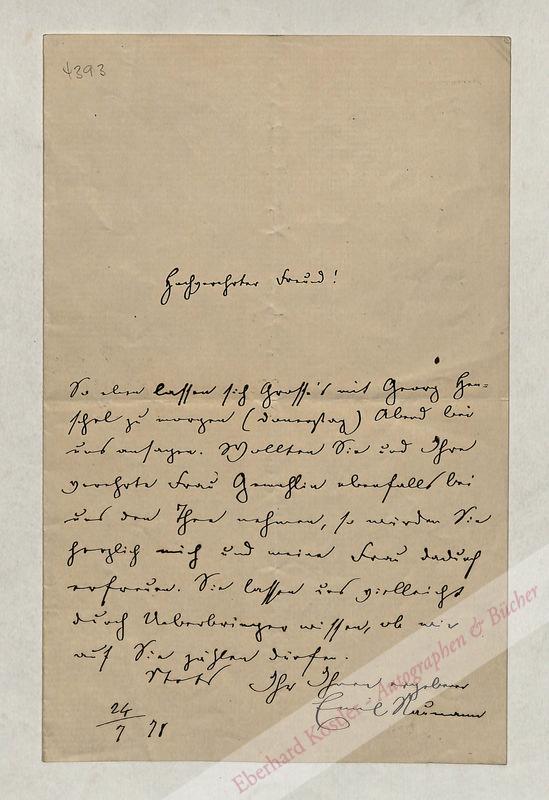 4393
Hochverehrter Freund!
So eben lassen sich Grosse's mit Georg Hen=
schel zu morgen (Donnerstag) Abend bei
uns ansagen. Wollten Sie und Ihre
verehrte Frau Gemahlin ebenfalls bei
uns den Thee nehmen, so würden Sie
herzlich mich und meine Frau dadurch
erfreuen. Sie lassen uns vielleicht
durch Ueberbringer wissen, ob wir
auf Sie zählen dürfen.
Stets Ihr Ihnen ergebener
Emil Naumann
24/7 78
Eberhard Köstler - Autographen & Bücher